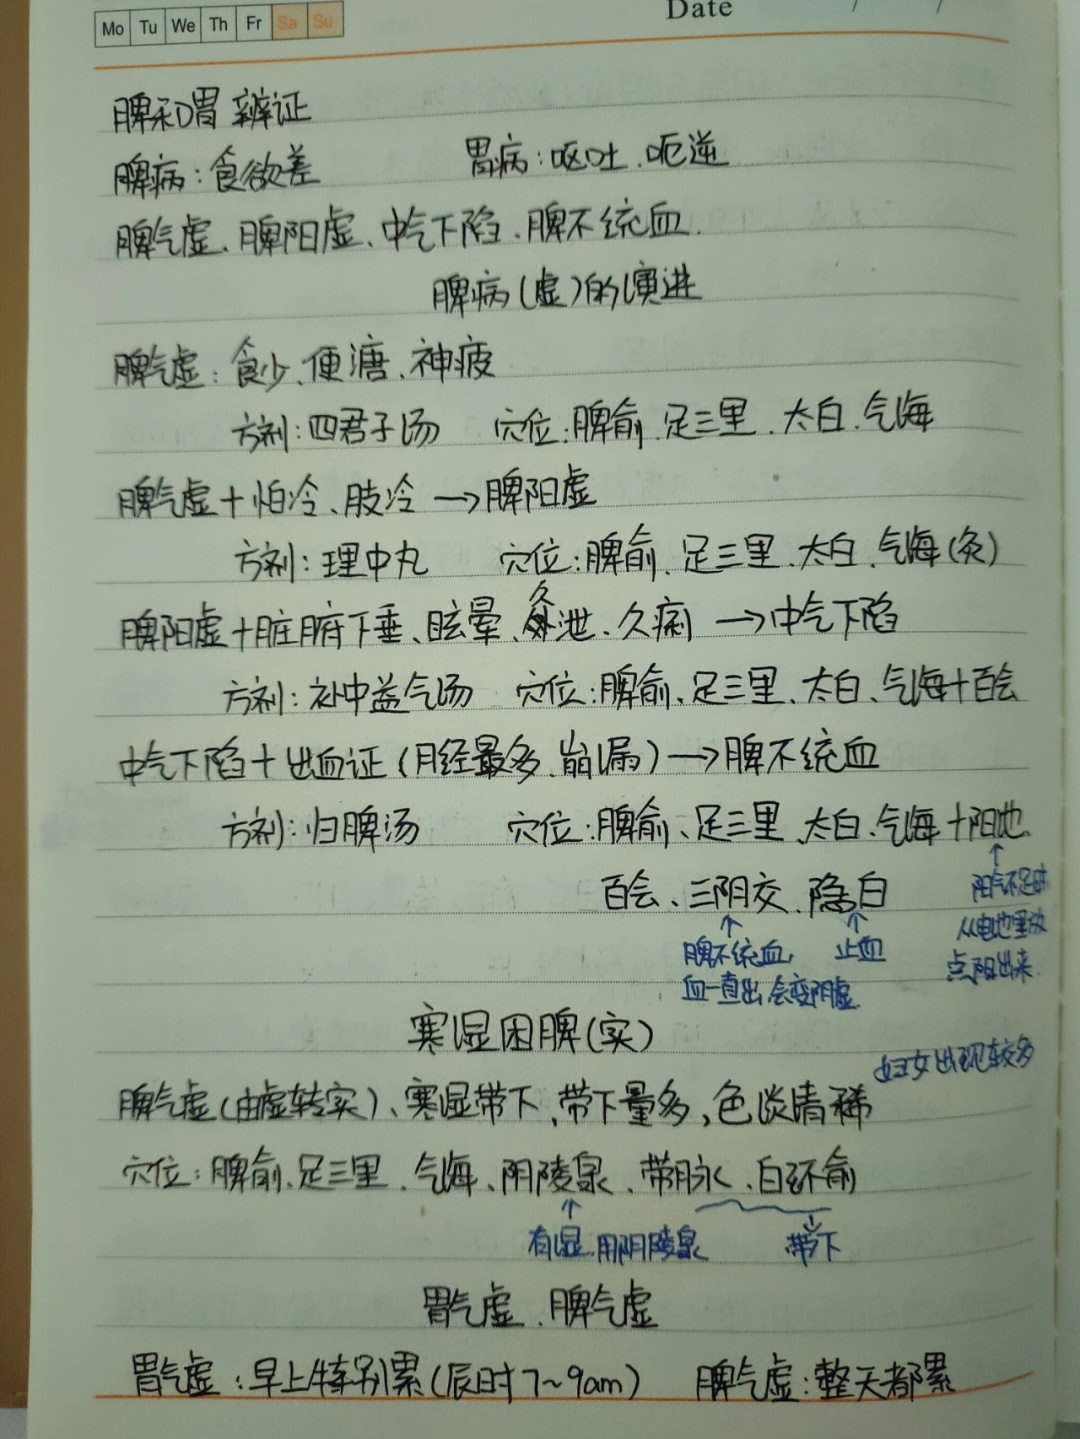 Mo Tu We Th Fr Sa Su
Date / /
脾和胃辨证
脾病：食欲差 胃病：呕吐、呃逆
脾气虚、脾阳虚、中气下陷、脾不统血.
脾病（虚）的演进
脾气虚：食少、便溏、神疲
方剂：四君子汤 穴位：脾俞、足三里、太白、气海
脾气虚＋怕冷、肢冷→脾阳虚
方剂：理中丸 穴位：脾俞、足三里、太白、气海（灸）
脾阳虚＋脏腑下垂、眩晕、久泄、久痢→中气下陷
方剂：补中益气汤 穴位：脾俞、足三里、太白、气海＋百会
中气下陷＋出血证（月经量多、崩漏）→脾不统血
方剂：归脾汤 穴位：脾俞、足三里、太白、气海＋阳池、
百会、三阴交、隐白
阳气不足时
从电池里放
点阳出来
脾不统血，
血一直出，会变阴虚
止血
寒湿困脾（实）
妇女出现较多
脾气虚（由虚转实）、寒湿带下、带下量多，色淡清稀
穴位：脾俞、足三里、气海、阴陵泉、带脉、白环俞
有湿 用阴陵泉 带下
胃气虚、脾气虚
胃气虚：早上特别累（辰时7~9am） 脾气虚：整天都累